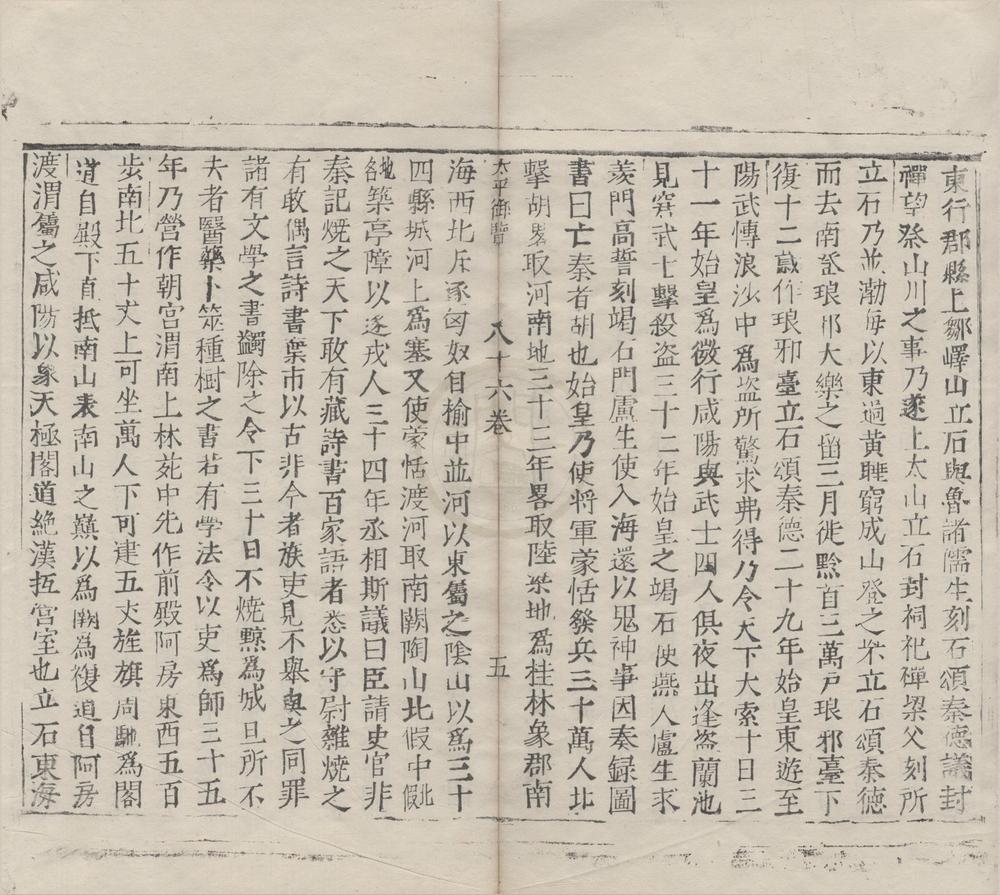 東行郡縣上鄒嶧山立石與魯諸儒生刻石頌秦德議封
禪望祭山川之事乃遂上太山立石封祠祀禪梁父刻所
立石乃並渤海以東過黃睡窮成山登之罘立石頌秦德
而去南登琅邪大樂之留三月徙黔首三萬戸琅邪臺下
復十二歲作琅邪臺立石頌秦德二十九年始皇東遊至
陽武博浪沙中爲盜所驚求弗得乃令天下大索十日三
十一年始皇爲微行咸陽與武士四人俱夜出逢盜蘭池
見窘武士擊殺盜三十二年始皇之碣石使燕人盧生求
羨門高誓刻竭石門盧生使入海還以鬼神事因奏録圖
書曰亡秦者胡也始皇乃使將軍蒙恬發兵三十萬人北
擊胡畧取河南地三十三年畧取陸梁地爲桂林象郡南
太平御覽 八十六卷 五
海西北斥逐匈奴自榆中並河以東屬之陰山以爲三十
四縣城河上爲塞又使蒙恬渡河取南闕陶山北假中北假
地名築亭障以逐戎人三十四年丞相斯議曰臣請史官非
秦記燒之天下敢有藏詩書百家語者悉以守尉雜燒之
有敢偶言詩書棄市以古非今者族吏見不舉與之同罪
諸有文學之書蠲除之令下三十日不燒黥爲城旦所不
去者醫藥卜筮種樹之書若有學法令以吏爲師三十五
年乃營作朝宮渭南上林苑中先作前殿阿房東西五百
步南北五十丈上可坐萬人下可建五丈旌旗周馳爲閣
道自殿下直抵南山表南山之巔以爲闕爲複道自阿房
渡渭屬之咸陽以象天極閣道絶漢抵宮室也立石東海